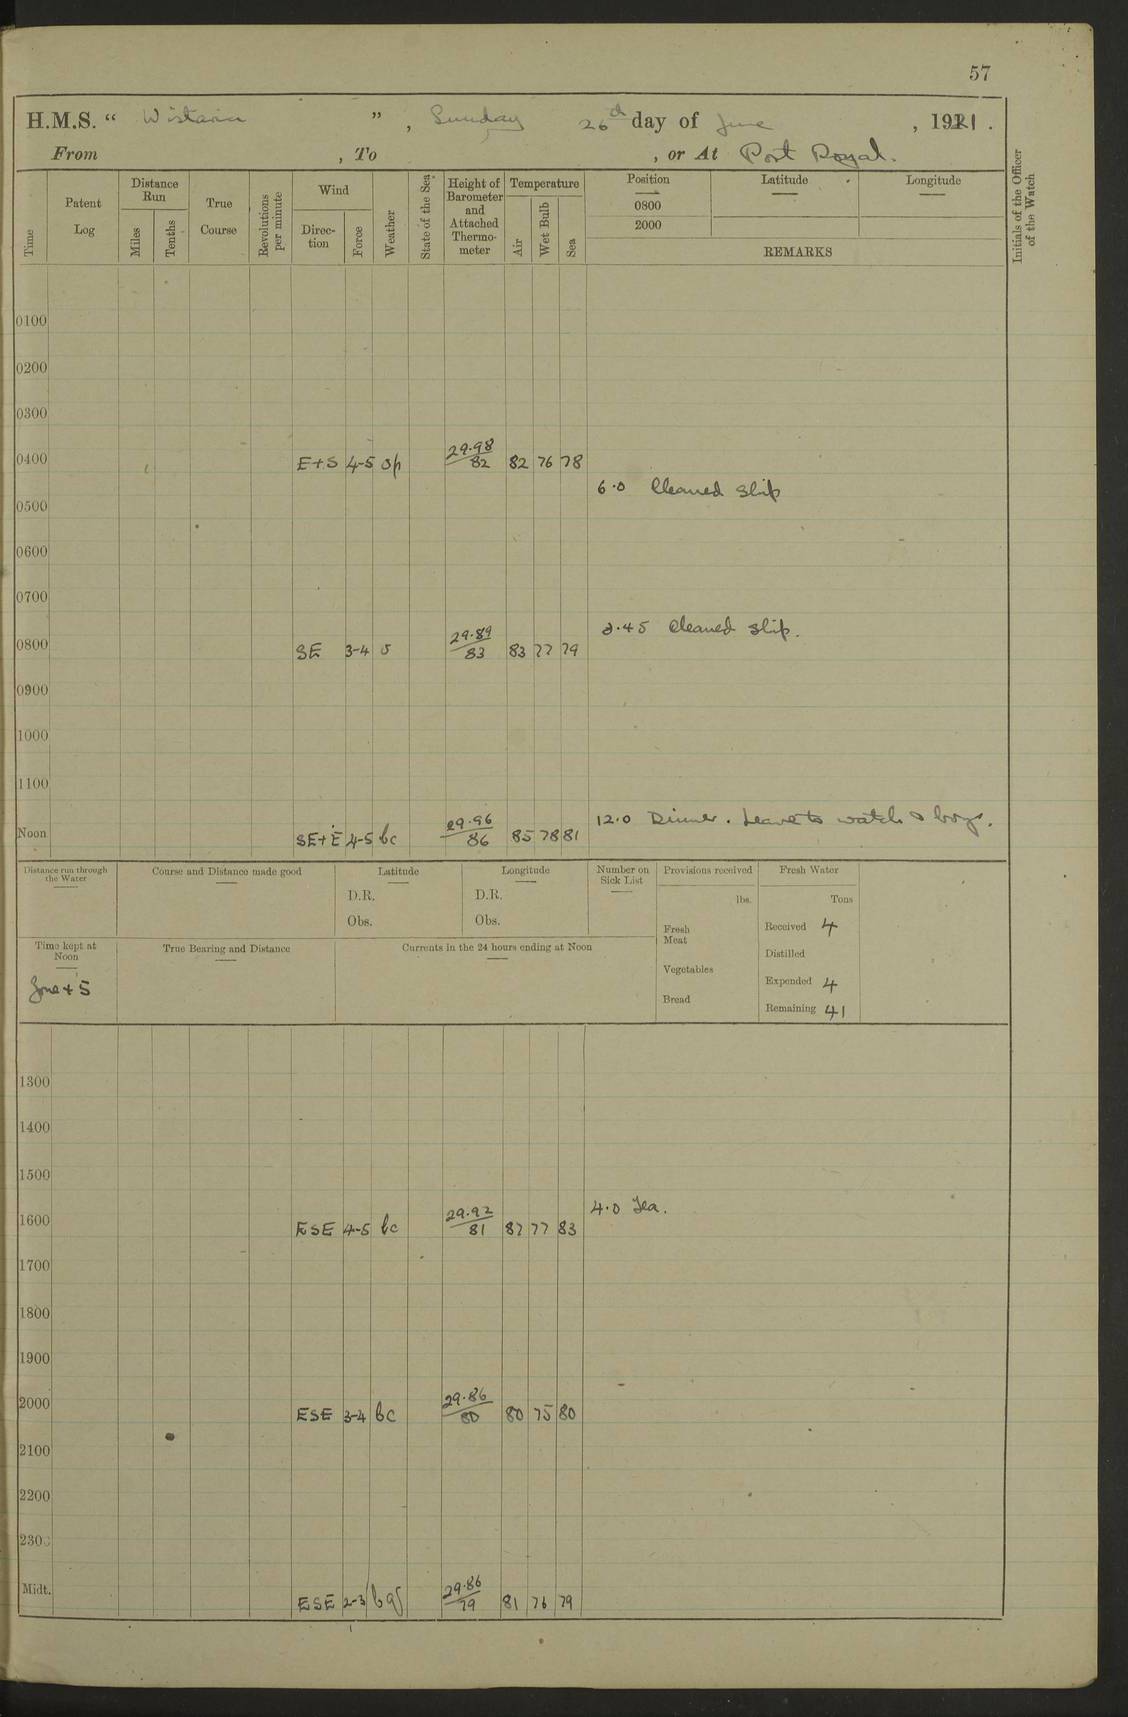 57
H.M.S. “ Wistaria ” , Sunday 26th day of June , 1921 .
From , To , or At Port Royal.
Time
Patent Log
Distance Run
Miles
Tenths
True Course
Revolutions per minute
Wind
Direction
Force
Weather
State of the Sea
Height of Barometer and Attached Thermometer
Temperature
Air
Wet Bulb
Sea
Position
0800
2000
Latitude
Longitude
REMARKS
Initials of the Officer of the Watch
0100
0200
0300
0400 E+S 4-5 op 29.98/82 82 76 78
6.0 Cleaned ship
0500
0600
0700
8.45 Cleaned ship.
0800 SE 3-4 o 29.89/83 83 77 79
0900
1000
1100
12.0 Dinner. Leave to watch & boys.
Noon SE+E 4-5 bc 29.96/86 85 78 81
Distance run through the Water
Course and Distance made good
Latitude
D.R.
Obs.
Longitude
D.R.
Obs.
Number on Sick List
Provisions received
lbs.
Fresh Meat
Vegetables
Bread
Fresh Water
Tons
Received 4
Distilled
Expended 4
Remaining 41
Time kept at Noon
Zone + 5
True Bearing and Distance
Currents in the 24 hours ending at Noon
1300
1400
1500
4.0 Tea.
1600 ESE 4-5 bc 29.92/81 82 77 83
1700
1800
1900
2000 ESE 3-4 bc 29.86/80 80 75 80
2100
2200
230
Midt. ESE 2-3 29.86/79 81 76 79